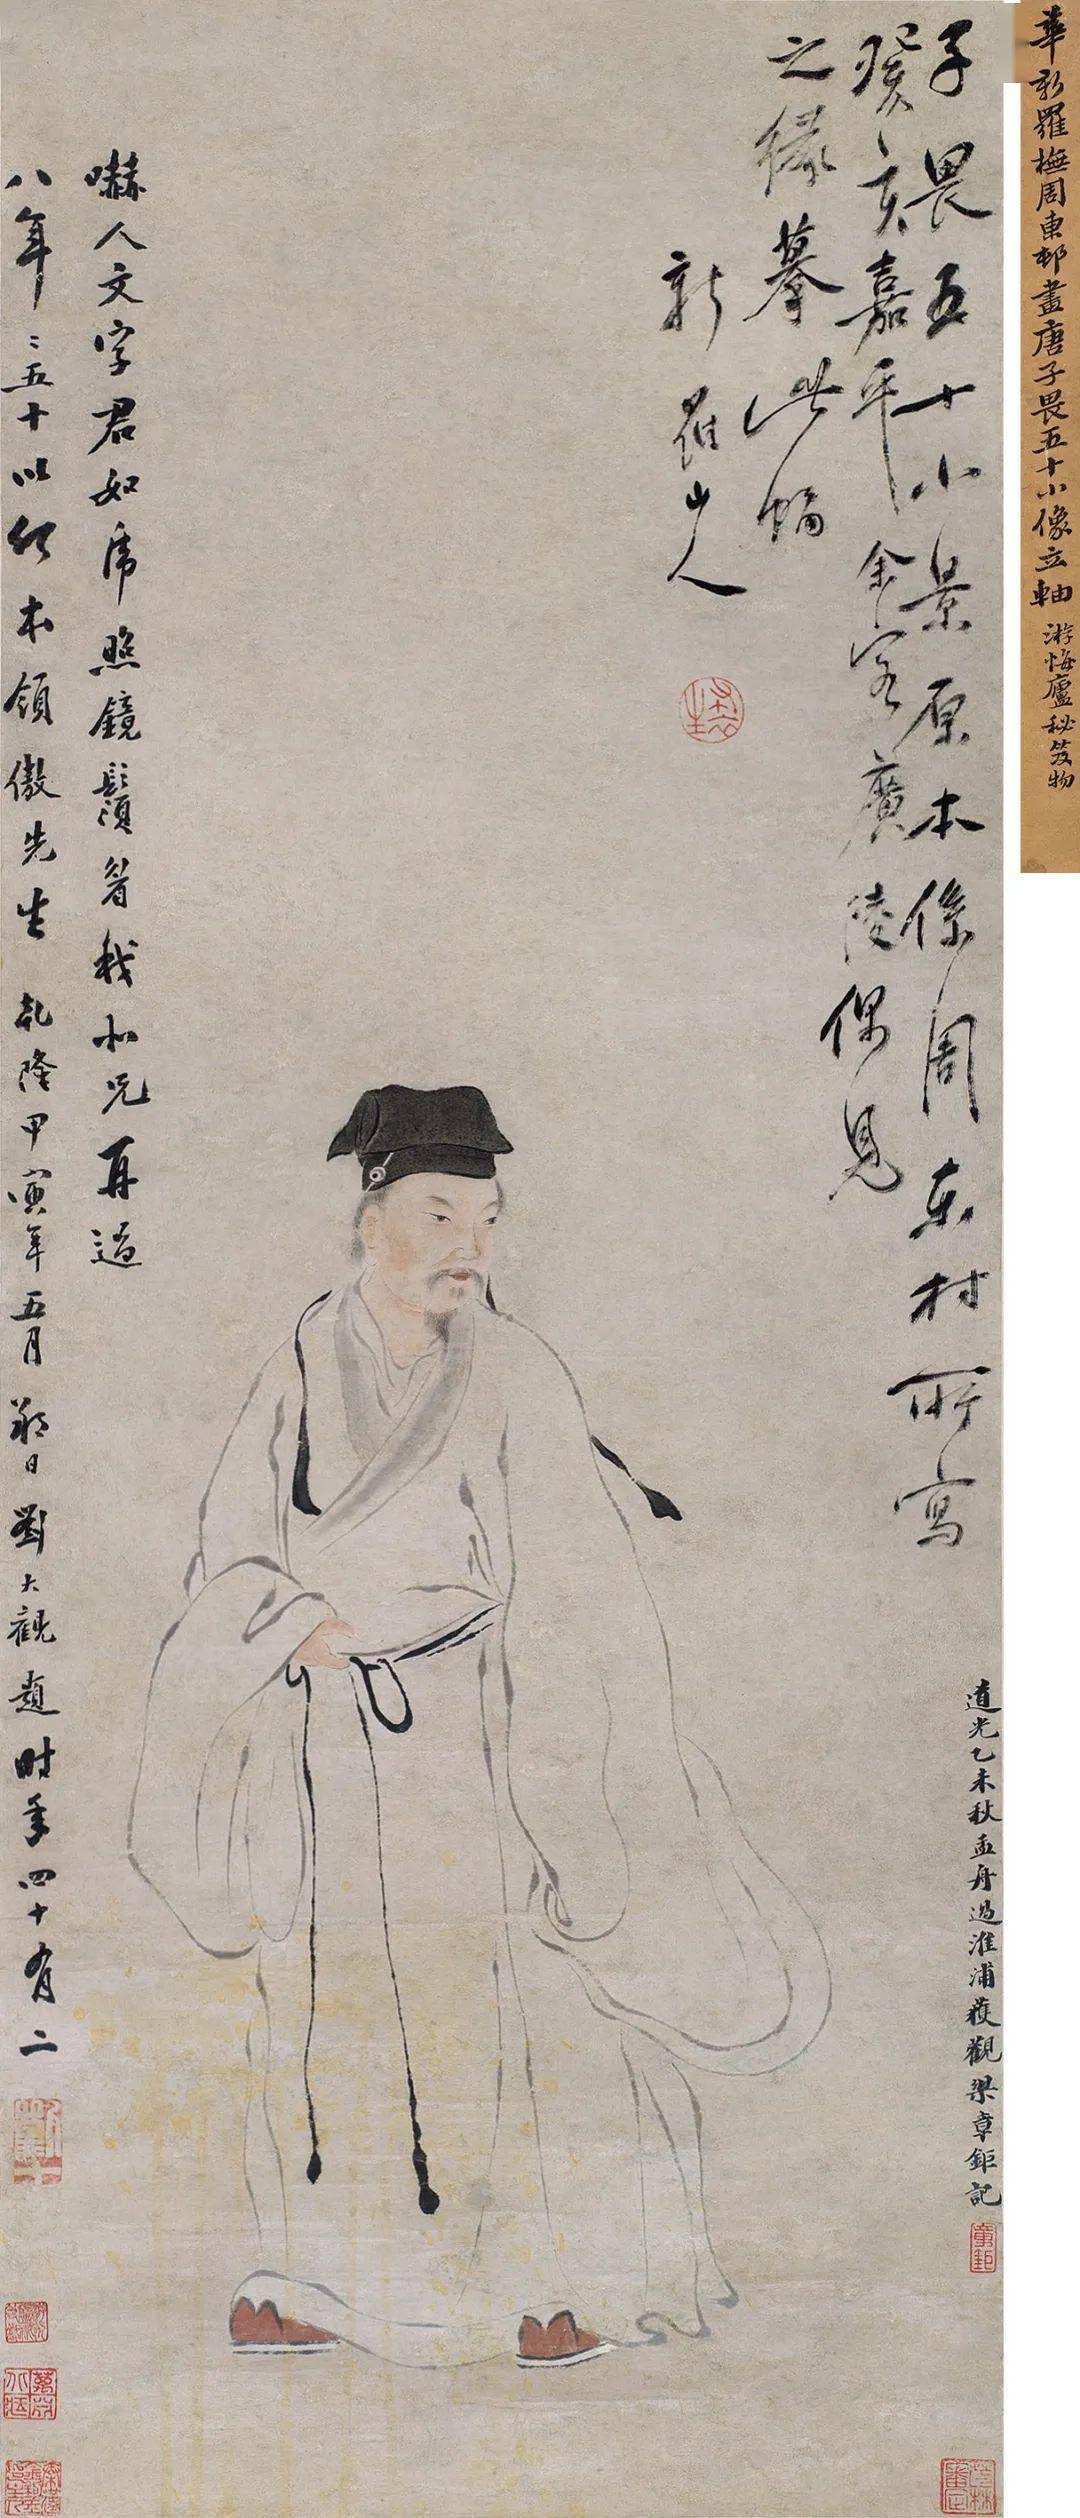 華新羅橅周東邨畫唐子畏五十小像立軸 游悔廬秘笈物
子畏五十小景原本係周東村所寫
癸亥嘉平余客廣陵偶見
之緣摹此幀
新羅山人
道光乙未秋孟舟過淮浦獲觀梁章鉅記
嚇人文字君如虎照鏡鬚眉我似兄再過
八年年五十以何本領傲先生 乾隆甲寅年五月朔日劉大觀題時年四十有二
章鉅